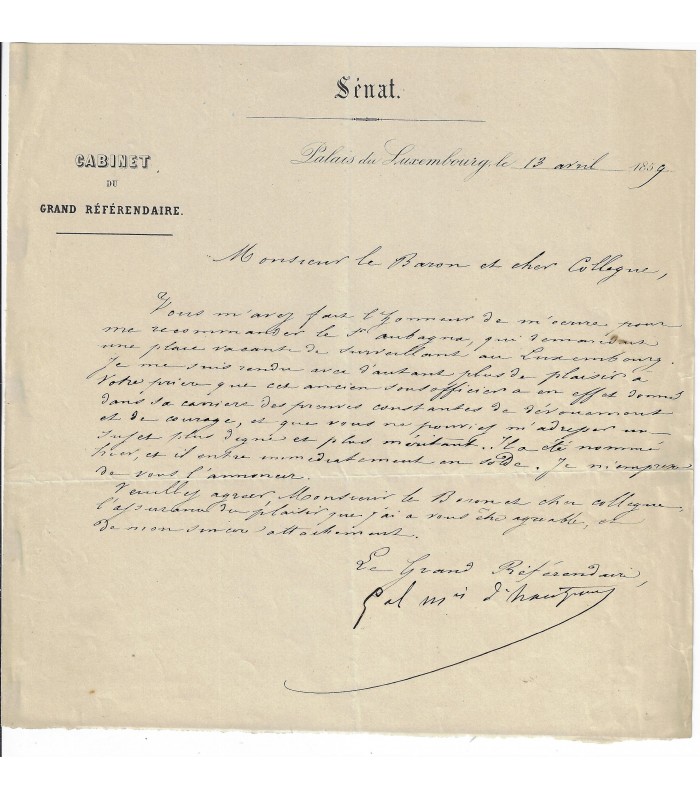 Sénat.
Palais du Luxembourg, le 13 avril 1859
CABINET
DU
GRAND RÉFÉRENDAIRE.
Monsieur le Baron et cher Collegue,
Vous m'avez fait l'honneur de m'ecrire pour
me recommander le Sr aubagna, qui demandait
une place vacante de surveillant au Luxembourg.
Je me suis rendu avec d'autant plus de plaisir a
votre priere que cet ancien sousofficier a en effet donné
dans sa cariere des preuves constantes de dévouement
et de courage, et que vous ne pouviez m'adresser un
sujet plus digne et plus méritant. Il a été nommé
hier, et il entre immediatement en solde. Je m'empresse
de vous l'annoncer.
Veuillez agreer Monsieur le Baron et cher collegue,
l'assurance du plaisir que j'ai a vous être agreable, et
de mon sincere attachement.
Le Grand Référendaire,
Gal Mis d'hautpoul